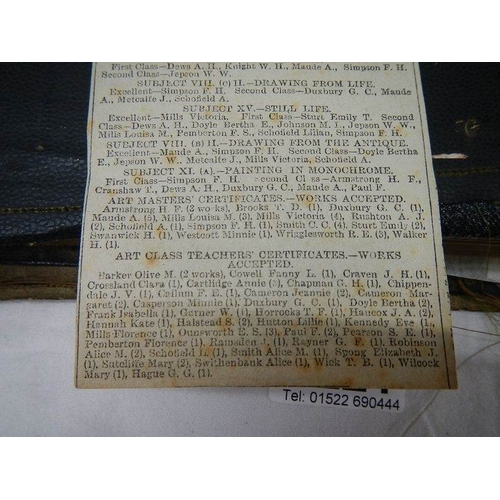 First Class—Dews A. H., Knight W. H., Maude A., Simpson F. H.
Second Class—Jepson W. W.
SUBJECT VIII. (C) II.—DRAWING FROM LIFE.
Excellent—Simpson F. H. Second Class—Duxbury G. C., Maude
A., Metcalfe J., Schofield A.
SUBJECT XV.—STILL LIFE.
Excellent—Mills Victoria. First Class—Sturt Emily T. Second
Class—Dews A. H., Doyle Bertha E., Johnson M. I., Jepson W. W.,
Mills Louisa M., Pemberton F. S., Schofield Lilian, Simpson F. H.
SUBJECT VIII. (B) II.—DRAWING FROM THE ANTIQUE.
Excellent—Maude A., Simpson F. H. Second Class—Doyle Bertha
E., Jepson W. W., Metcalfe J., Mills Victoria, Schofield A.
SUBJECT XI. (A).—PAINTING IN MONOCHROME.
First Class—Simpson F. H. Second Class—Armstrong H. F.,
Cranshaw T., Dews A. H., Duxbury G. C., Maude A., Paul F.
ART MASTERS' CERTIFICATES.—WORKS ACCEPTED.
Armstrong H. F. (2 works), Brooks T. D. (1), Duxbury G. C. (1),
Maude A. (5), Mills Louisa M. (3), Mills Victoria (4), Rushton A. J.
(2), Schofield A. (1), Simpson F. H. (1), Smith C. C. (4), Sturt Emily (2),
Swanwick H. (1), Westcott Minnie (1), Wrigglesworth R. E. (3), Walker
H. (1).
ART CLASS TEACHERS' CERTIFICATES.—WORKS
ACCEPTED.
Barker Olive M. (2 works), Cowell Fanny L. (1), Craven J. H. (1),
Crossland Clara (1), Cartlidge Annie (3), Chapman G. H. (1), Chippen-
dale J. V. (1), Callum F. E. (1), Cameron Jeannie (2), Cameron Mar-
garet (2), Chapman Minnie (1), Duxbury G. C. (1), Doyle Bertha (2),
Frank Isabella (1), Garner W. (1), Horrocks T. F. (1), Haucox J. A. (2),
Hannah Kate (1), Halstead S. (2), Hutton Lillie (1), Kennedy Eve (1),
Mills Florence (1), Ounsworth E. S. (3), Paul F. (2), Pearson S. E. (1),
Pemberton Florence (1), Ramsden J. (1), Rayner G. F. (1), Robinson
Alice M. (2), Schofield L. (1), Smith Alice M. (1), Spong Elizabeth J.
(1), Sutcliffe Mary (2), Swithenbank Alice (1), Wick T. B. (1), Wilcock
Mary (1), Hague G. G. (1).
Tel: 01522 690444